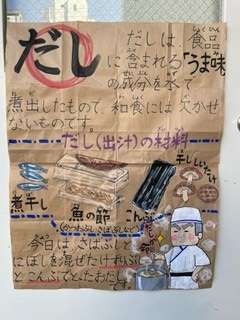 だし
だしは、食品
に含まれる「うま味」
の成分を水で
煮出したもので、和食には欠かせ
ないものです。
だし(出汁)の材料
煮干し
魚の節
(かつおぶし、さばぶしなど)
こんぶ
干ししいたけ
今日は、さばぶしと
にぼしを混ぜたけずりぶし
とこんぶでとっただしだ